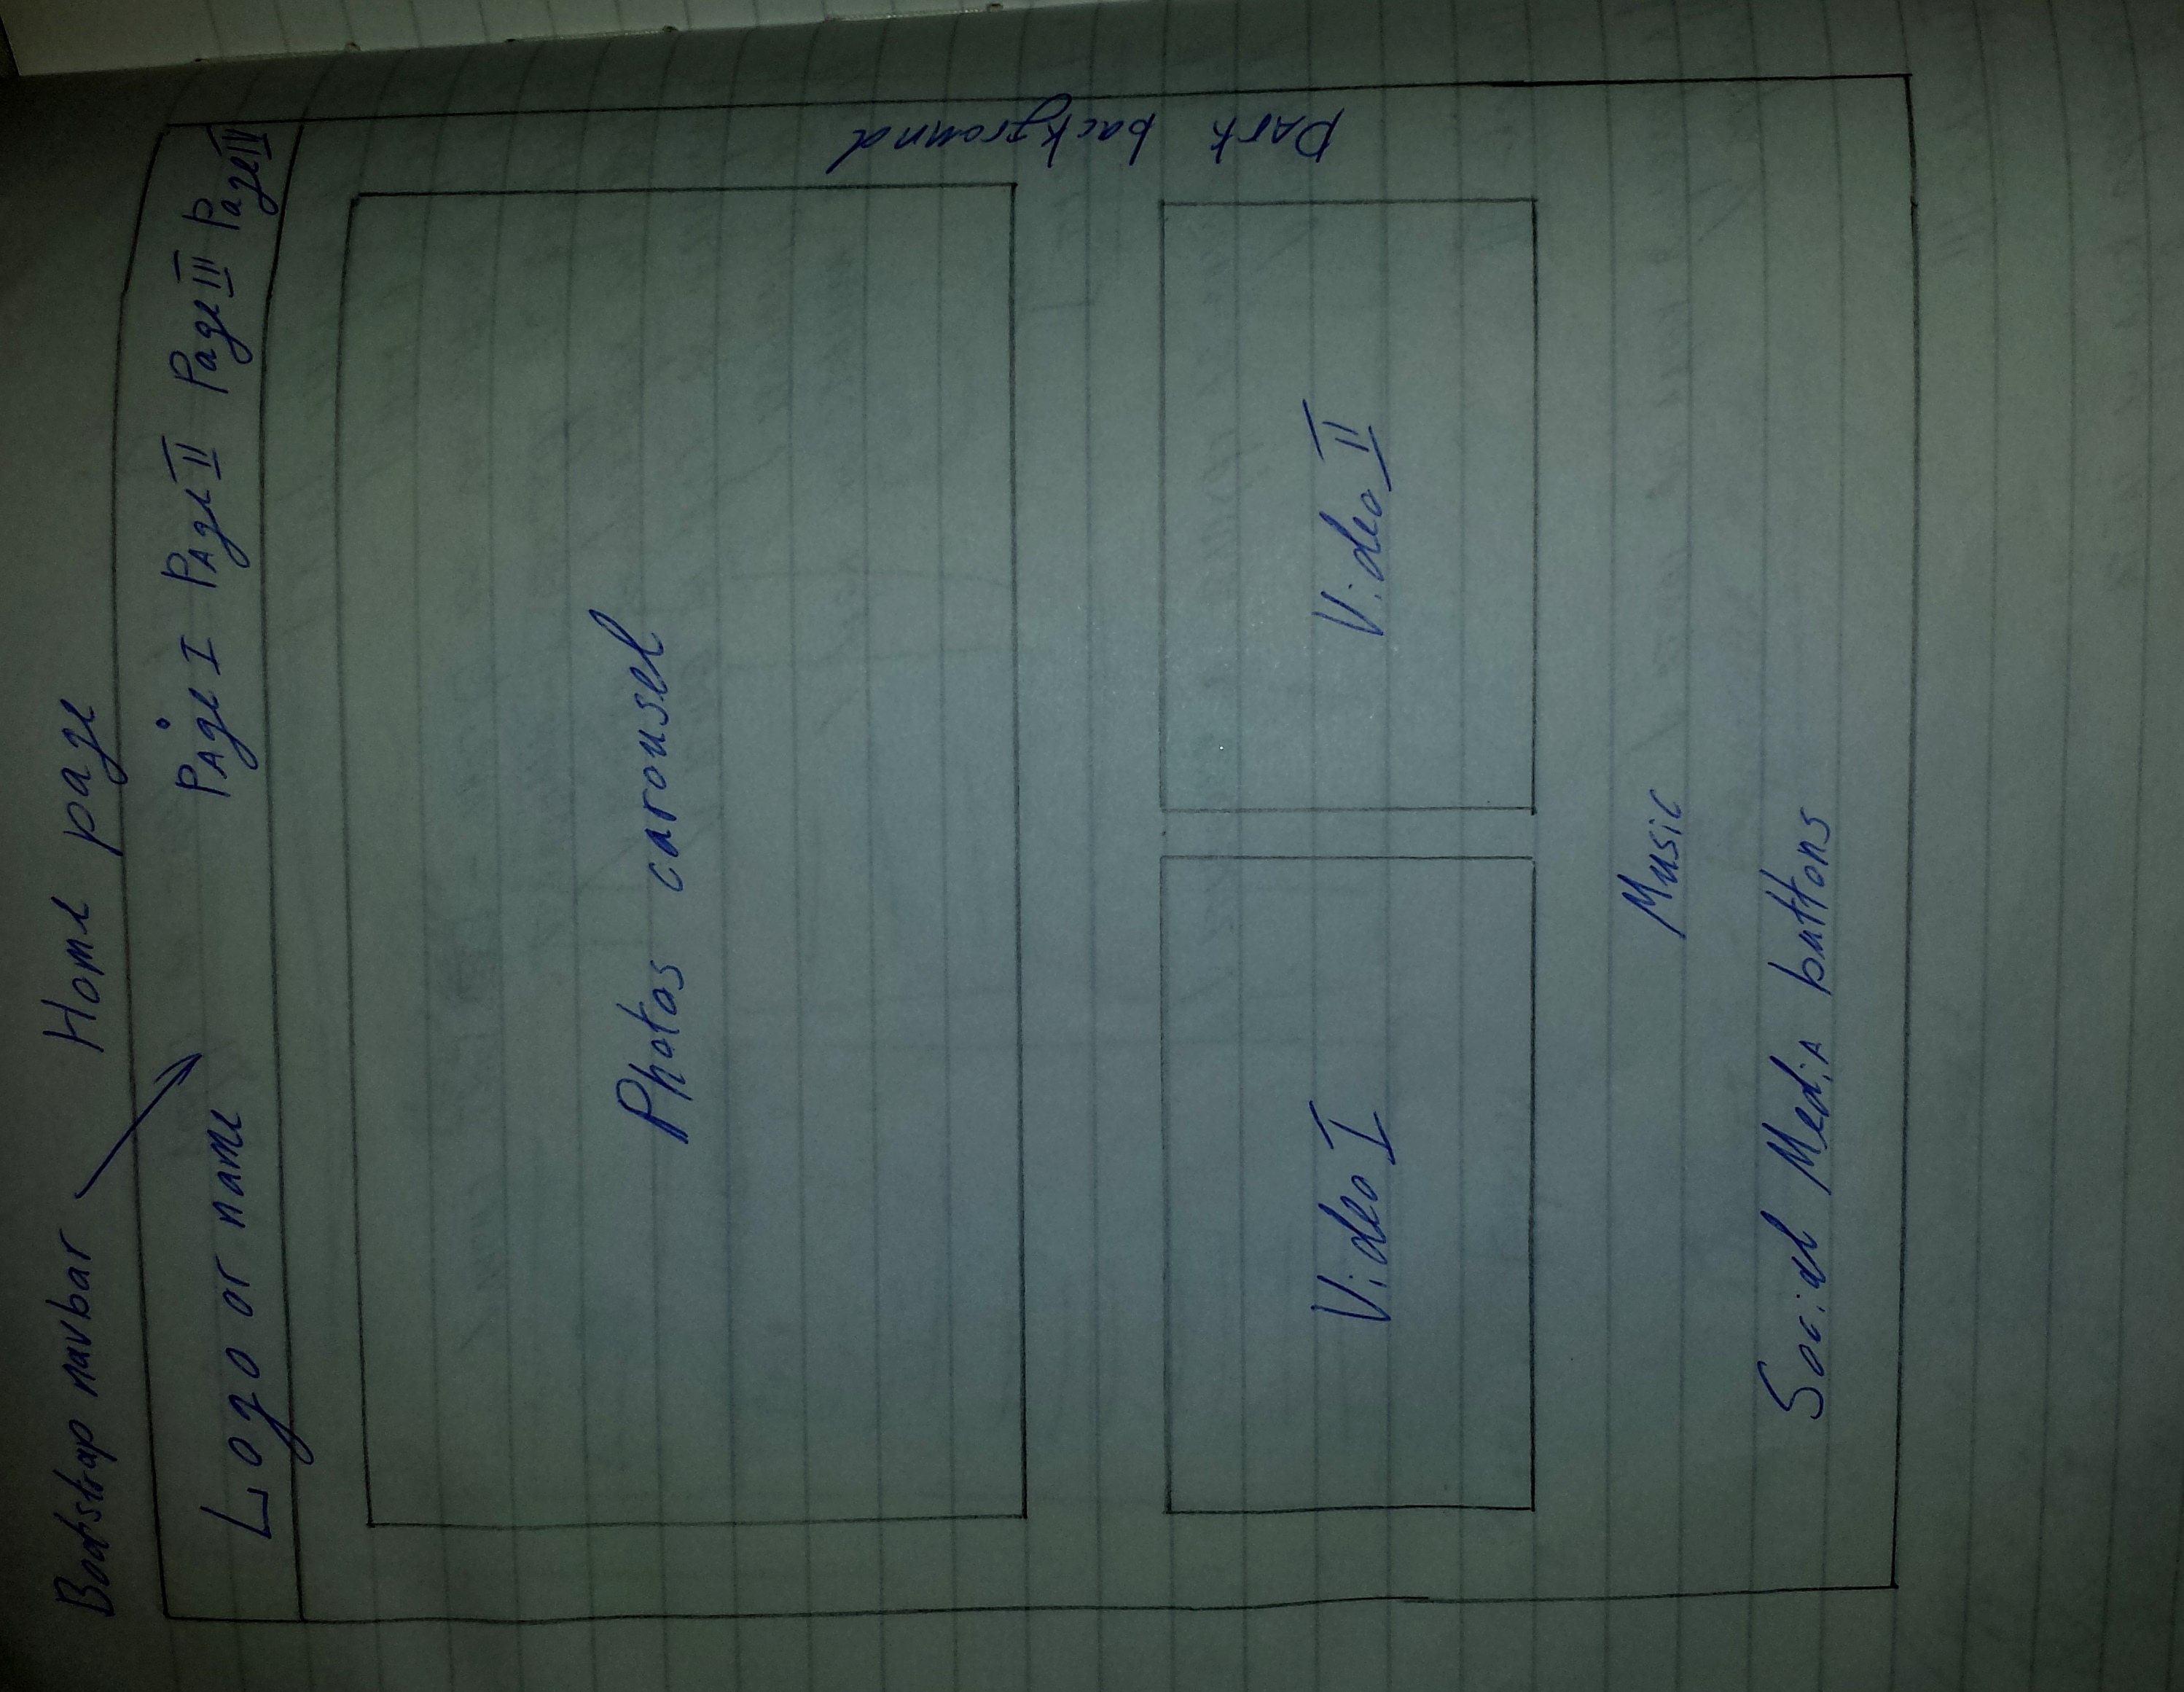 Bootstrap navbar
Home page
Logo or name
Page I Page II Page III Page IV
Photos carousel
Dark background
Video I
Video II
Music
Social Media buttons